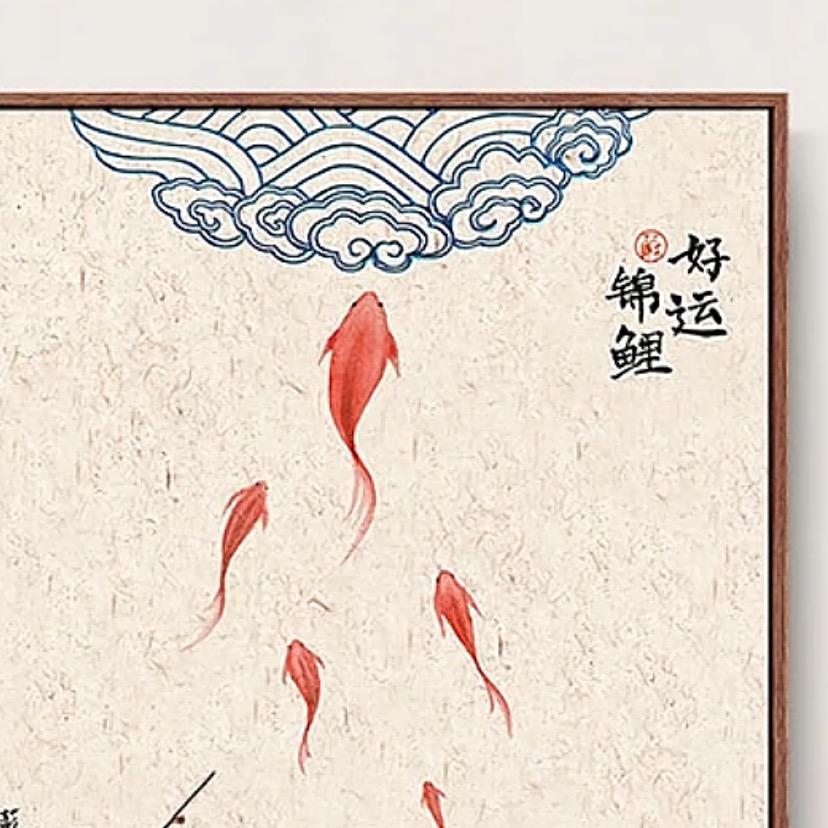 好运
锦鲤